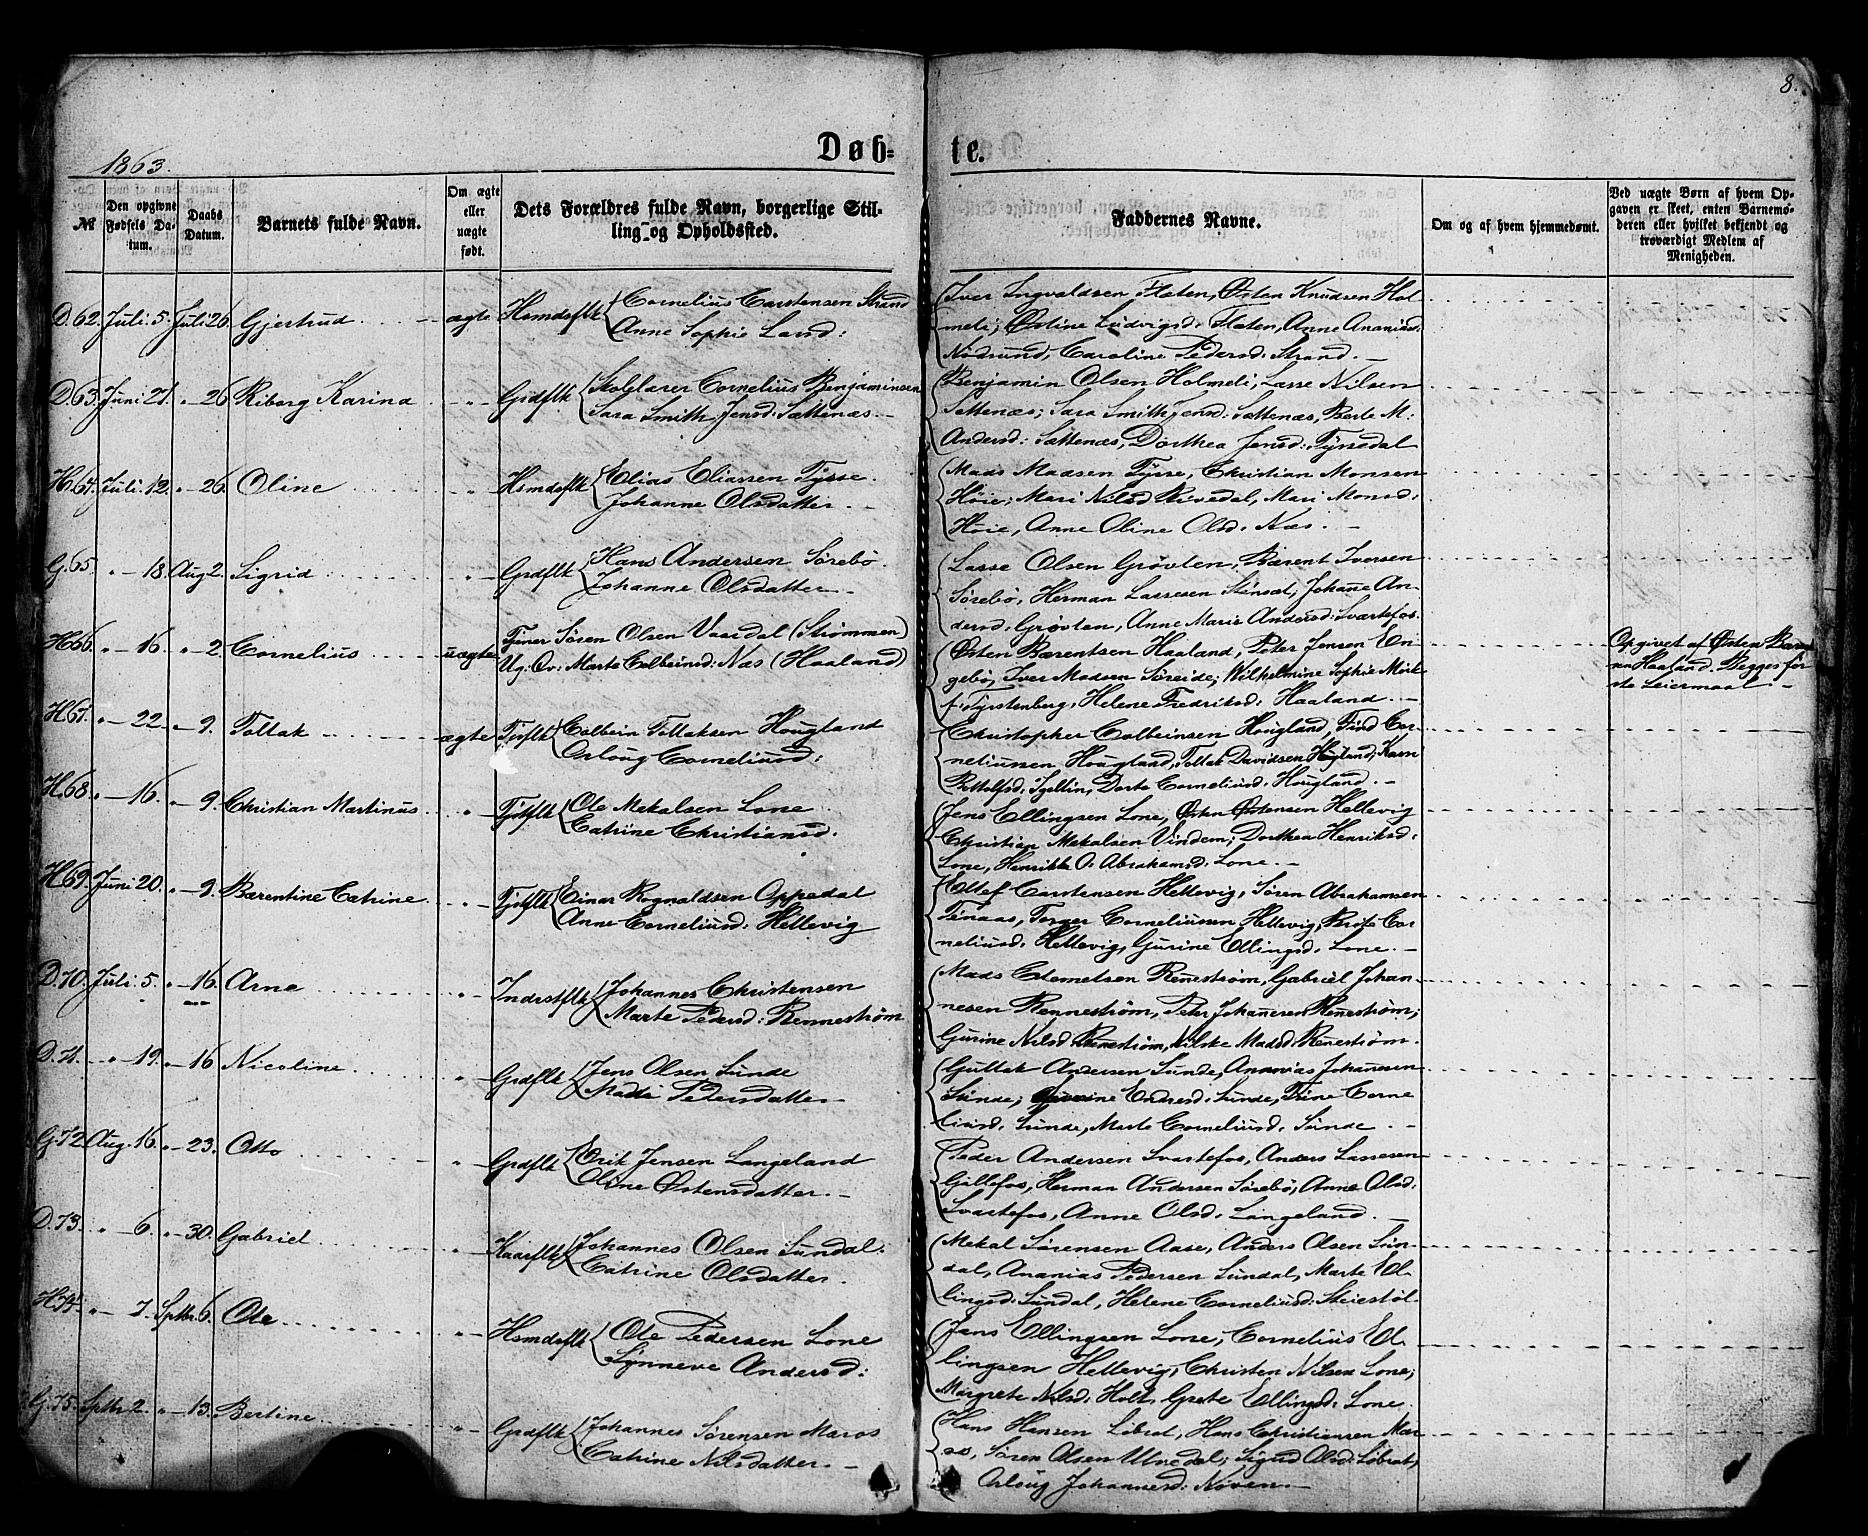 8.
Døb= te.
1863.
№
Den opgivne Fødsels Da-
tum.
Daabs
Datum.
Barnets fulde Navn.
Om ægte
eller
uægte
født.
Dets Forældres fulde Navn, borgerlige Stil-
ling og Opholdssted.
Faddernes Navne.
Om og af hvem hjemmedøbt.
Ved uægte Børn af hvem Op-
gaven er skeet, enten Barnemo-
deren eller hvilket bekjendt og
troværdigt Medlem af
Menigheden.
D. 62. Juli 5. Juli 26. Gjertrud ægte Hsmdsflk Cornelius Carstensen Strand
Anne Sophie Larsd:
Iver Ingvaldsen Flaten, Østen Knudsen Hol-
meli; Østine Ludvigsd: Flaten, Anne Ananiasd:
Nødsund, Caroline Pedersd: Strand. —
D. 63. Juni 27. " — 26 Riborg Karina " Grdflk Skolelærer Cornelius Benjaminsen
Sara Smith Jensd: Sættenæs. —
Benjamin Olsen Holmeli, Lasse Nilsen
Sættenæs; Sara Smith Jensd: Sættenæs, Berte M.
Andersd: Sættenæs, Dorthea Jensd: Tyssedal
H. 64. Juli 12. " — 26. Oline " Hsmdsflk Elias Eliassen Tysse.
Johanne Olsdatter. —
Mads Madsen Tysse, Christian Monsen
Høie; Mari Nilsd Rivedal, Mari Monsd:
Høie, Anne Oline Olsd: Næs. —
G. 65. " — 18. Aug 2. Sigrid " Grdflk Hans Andersen Sørebø.
Johanne Olsdatter. —
Lasse Olsen Grøvlen, Bærent Iversen
Sørebø, Herman Lassesen Stensæt; Johanne An-
dersd: Grøvlen, Anne Marie Andersd: Svartefos.
H. 66. " — 16. " — 2. Cornelius uægte Tjener Søren Olsen Vaardal (Strømmen)
Ug: Qv: Marte Colbeinsd: Næs (Haaland)
Østen Bærentsen Haaland, Peter Jensen En-
gebø, Iver Madsen Søreide; Wilhelmine Sophie Mørk
f. Fyrstenberg, Helene Fredriksd: Haaland. —
Opgivet af Østen
Haaland. Begges før-
ste Leiermaal. —
H. 67. " — 22. " — 9. Tollak ægte Tjsflk Colbein Tollaksen Hougland
Aslaug Corneliusd:
Christopher Colbeinsen Hougland, Find Cor-
neliussen Hougland, Tollak Davidsen Hougland; Karn
Dorte Corneliusd: Hougland. —
H. 68. " — 16. " — 9. Christian Martinus " Tjstflk Ole Mekalsen Lone
Catrine Christiansd:
Jens Ellingsen Lone, Østen Østensen Hellevig
Christian Mekalsen Vindem; Dorthea Henriksd:
Lone, Henrikke O. Abrahamsd: Lone. —
H. 69. Juni 20. " — 9. Barentine Catrine " Tjstflk Einar Rognaldsen Oppedal
Anne Corneliusd: Hellevig
Ellef Carstensen Hellevig, Søren Abrahamsen
Tenaas, Torger Corneliussen Hellevig, Berte Cor-
neliusd: Hellevig, Gurine Ellingsd: Lone. —
D. 70. Juli 5. " — 16. Arne " Indrstflk Johannes Christensen
Marte Pedersd: Rennestrøm
Mads Clemetsen Renestrøm, Gabriel Johan-
nesen Rennestrøm, Peter Johanesen Renestrøm;
Gurine Nilsd Renestrøm, Nilske Madsd Renestrøm.
D. 71. " — 19. " — 16 Nicoline " Grdflk Jens Olsen Sunde
Madti Pedersdatter. —
Guttak Andersen Sunde, Ananias Johanesen
Sunde; Endresd: Sunde, Trine Corne
liusd: Sunde, Marte Corneliusd: Sunde. —
G. 72. Aug. 16. " — 23. Otto " Grdflk Erik Jensen Langeland
Oline Østensdatter. —
Peder Andersen Svartefos, Anders Lassesen
Gillefos, Herman Andersen Sørebø; Anne Olsd:
Svartefos, Anne Olsd: Langeland. —
D. 73. " — 6. " — 30. Gabriel " Kaarflk Johannes Olsen Sundal.
Catrine Olsdatter.
Mekal Sørensen Aase, Anders Olsen Sun-
dal, Ananias Pedersen Sundal, Marte El-
lingsd: Sundal, Helene Corneliusd: Steiestøl.
H. 74. " — 7. Sptbr 6. Ole " Hsmdsflk Ole Pedersen Lone
Synneve Andersd:
Jens Ellingsen Lone, Cornelius El-
lingsen Hellevig, Christen Nilsen Lone;
Margrete Nilsd: Holt, Grete Ellingsd: Lone.
G. 75. Sptbr 2. " — 13. Bertine " Grdflk Johannes Sørensen Maraas
Catrine Nilsdatter. —
Hans Hansen Librot, Hans Christiansen Mar-
aas, Søren Olsen Ulvedal; Sigrid Olsd: Librot,
Aslaug Johannesd: Nøven. —